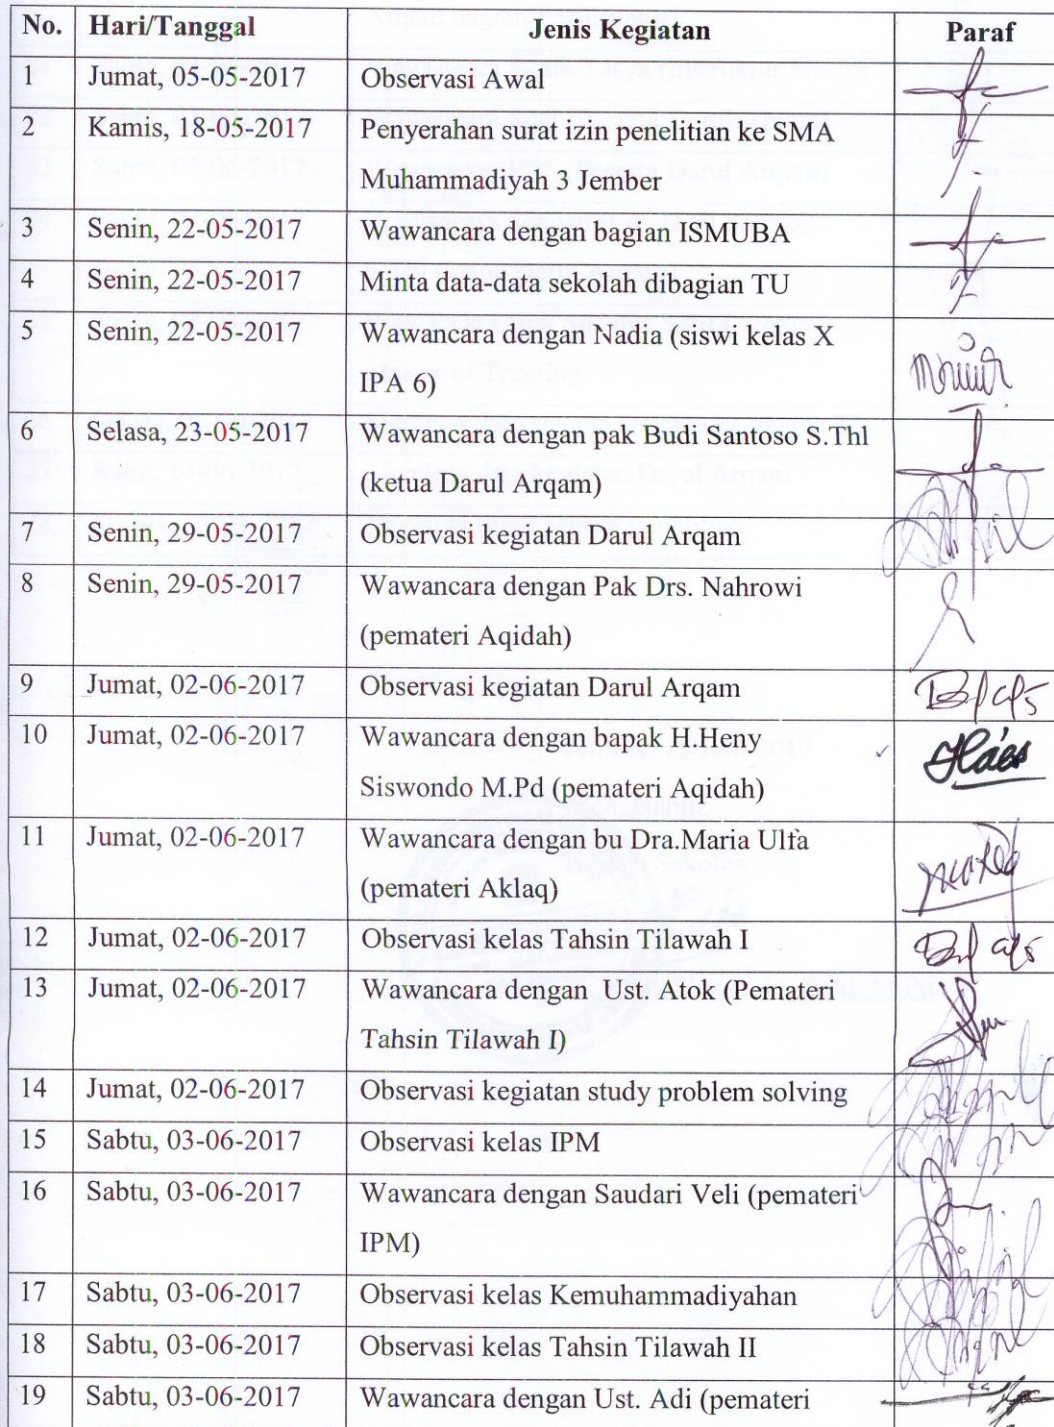 No. Hari/Tanggal Jenis Kegiatan Paraf
1 Jumat, 05-05-2017 Observasi Awal
2 Kamis, 18-05-2017 Penyerahan surat izin penelitian ke SMA
Muhammadiyah 3 Jember
3 Senin, 22-05-2017 Wawancara dengan bagian ISMUBA
4 Senin, 22-05-2017 Minta data-data sekolah dibagian TU
5 Senin, 22-05-2017 Wawancara dengan Nadia (siswi kelas X
IPA 6)
6 Selasa, 23-05-2017 Wawancara dengan pak Budi Santoso S.Thl
(ketua Darul Arqam)
7 Senin, 29-05-2017 Observasi kegiatan Darul Arqam
8 Senin, 29-05-2017 Wawancara dengan Pak Drs. Nahrowi
(pemateri Aqidah)
9 Jumat, 02-06-2017 Observasi kegiatan Darul Arqam
10 Jumat, 02-06-2017 Wawancara dengan bapak H.Heny
Siswondo M.Pd (pemateri Aqidah)
11 Jumat, 02-06-2017 Wawancara dengan bu Dra.Maria Ulfa
(pemateri Aklaq)
12 Jumat, 02-06-2017 Observasi kelas Tahsin Tilawah I
13 Jumat, 02-06-2017 Wawancara dengan Ust. Atok (Pemateri
Tahsin Tilawah I)
14 Jumat, 02-06-2017 Observasi kegiatan study problem solving
15 Sabtu, 03-06-2017 Observasi kelas IPM
16 Sabtu, 03-06-2017 Wawancara dengan Saudari Veli (pemateri
IPM)
17 Sabtu, 03-06-2017 Observasi kelas Kemuhammadiyahan
18 Sabtu, 03-06-2017 Observasi kelas Tahsin Tilawah II
19 Sabtu, 03-06-2017 Wawancara dengan Ust. Adi (pemateri